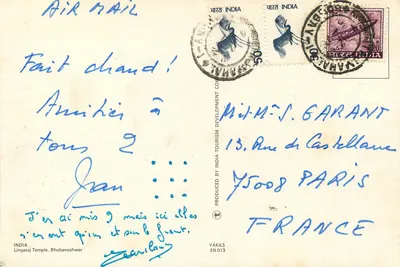 AIR MAIL
Fait chaud !
Amitiés à
tous 2
Jean
J'en ai mis 9 mais ici elles
n'en ont qu'un et sur le front.
INDIA
Lingaraj Temple, Bhubaneshwar
PRODUCED BY INDIA TOURISM DEVELOPMENT CO
VAKILS
EN 013
INDIA
50
INDIA
30
M. et Mme S. GARANT
13 Rue de Castellane
75008 PARIS
FRANCE